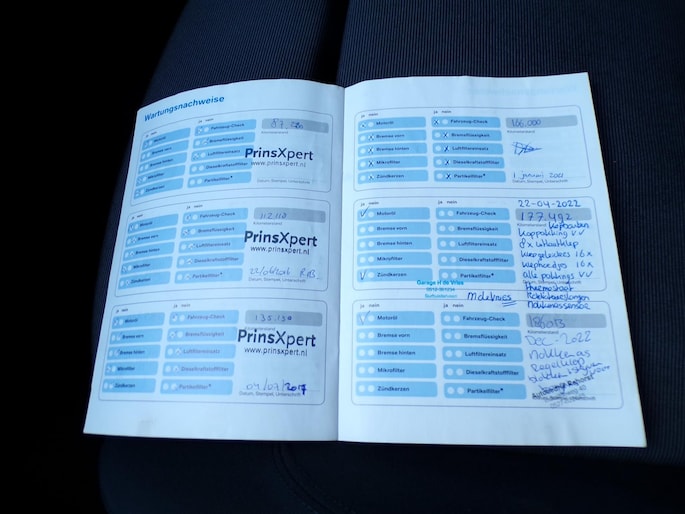 Wartungsnachweise
ja nein
ja nein
Motoröl
Fahrzeug-Check
Bremse vorn
Bremsflüssigkeit
Bremse hinten
Luftfiltereinsatz
Mikrofilter
Dieselkraftstofffilter
Zündkerzen
Partikelfilter*
Kilometerstand
PrinsXpert
www.prinsxpert.nl
Datum, Stempel, Unterschrift
ja nein
ja nein
Motoröl
Fahrzeug-Check
Bremse vorn
Bremsflüssigkeit
Bremse hinten
Luftfiltereinsatz
Mikrofilter
Dieselkraftstofffilter
Zündkerzen
Partikelfilter*
Kilometerstand
PrinsXpert
www.prinsxpert.nl
Datum, Stempel, Unterschrift
ja nein
ja nein
Motoröl
Fahrzeug-Check
Bremse vorn
Bremsflüssigkeit
Bremse hinten
Luftfiltereinsatz
Mikrofilter
Dieselkraftstofffilter
Zündkerzen
Partikelfilter*
Kilometerstand
PrinsXpert
www.prinsxpert.nl
04/07/2017
Datum, Stempel, Unterschrift
ja nein
ja nein
Motoröl
Fahrzeug-Check
Bremse vorn
Bremsflüssigkeit
Bremse hinten
Luftfiltereinsatz
Mikrofilter
Dieselkraftstofffilter
Zündkerzen
Partikelfilter*
166.000
Kilometerstand
1 januari
Datum, Stempel, Unterschrift
ja nein
ja nein
Motoröl
Fahrzeug-Check
Bremse vorn
Bremsflüssigkeit
Bremse hinten
Luftfiltereinsatz
Mikrofilter
Dieselkraftstofffilter
Zündkerzen
Partikelfilter*
22-04-2022
177.492
Kilometerstand
Kopbouten
koppakking
8x uitlaatklep
klepgeleiders 16x
klepveedjes 16x
alle pakkings
thermostaat
Nokkenassensor
Garage H de Vries
ja nein
ja nein
Motoröl
Fahrzeug-Check
Bremse vorn
Bremsflüssigkeit
Bremse hinten
Luftfiltereinsatz
Mikrofilter
Dieselkraftstofffilter
Zündkerzen
Partikelfilter*
Kilometerstand
DEC-2022
Nokkenas
Regelklep